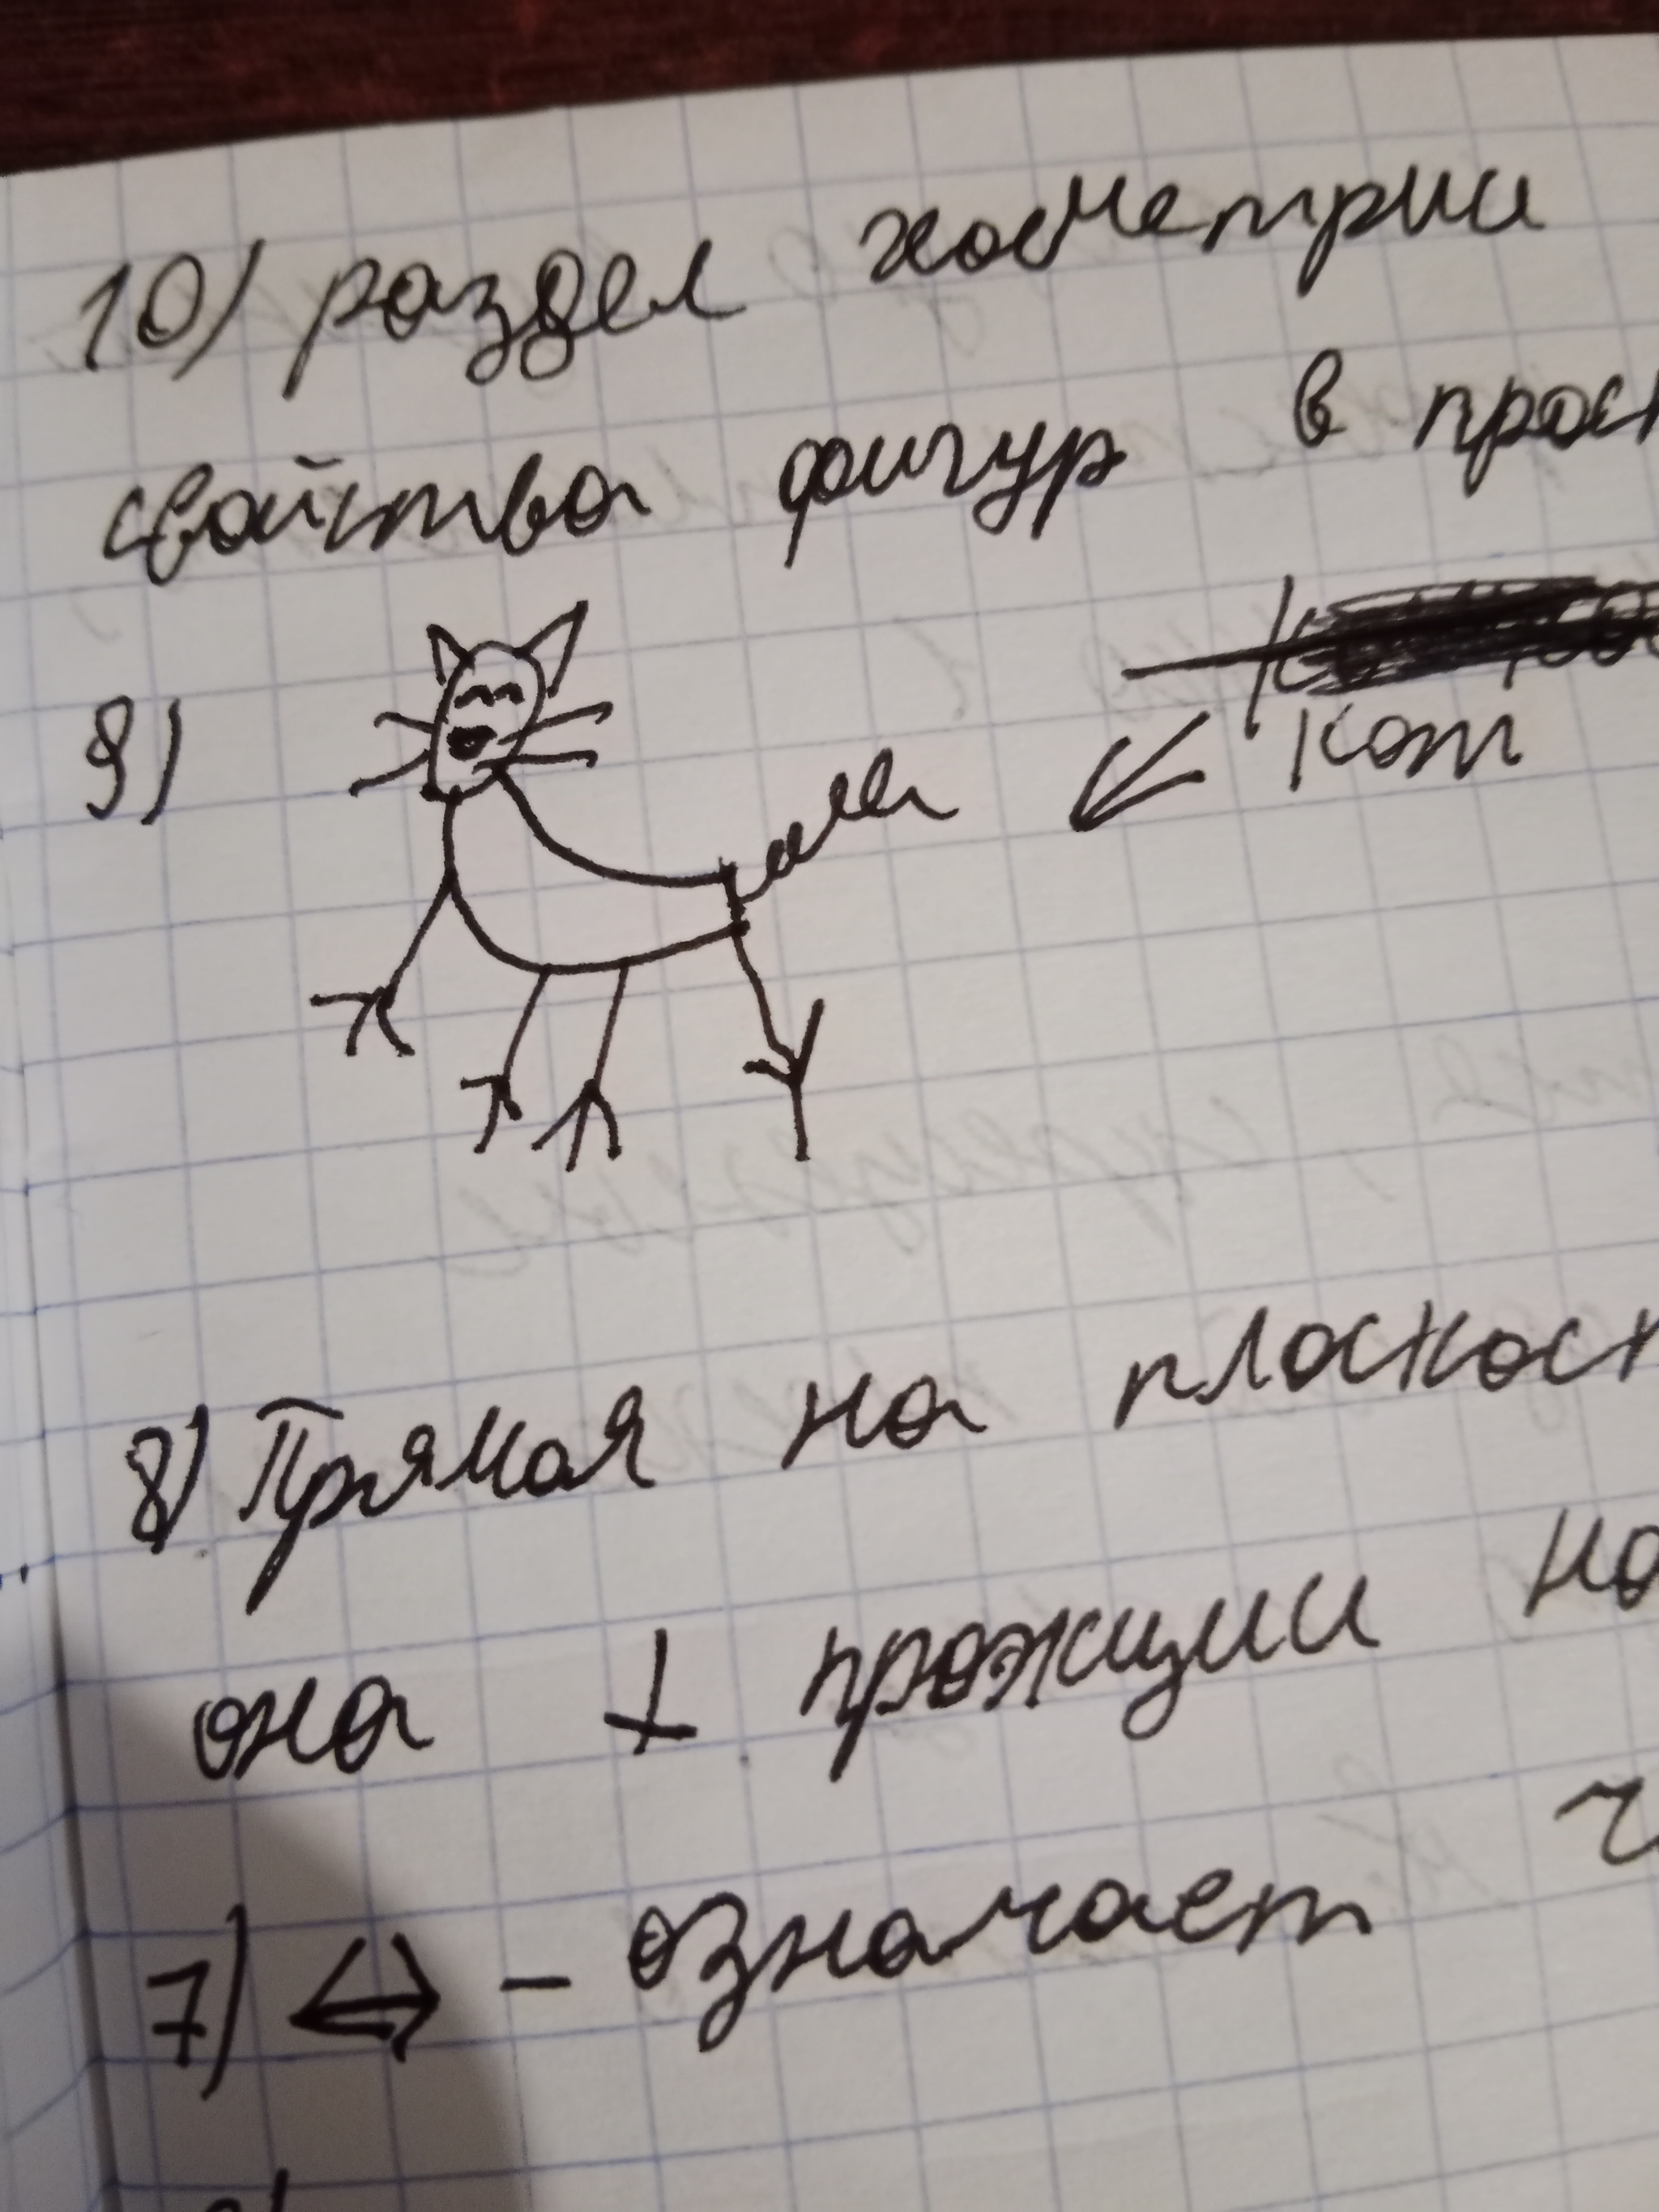 10) раздел геометрии
свойства фигур в прост
9)
кот
8) Прямая на плоскост
она ⊥ проэкции на
7) ⇔ - означает